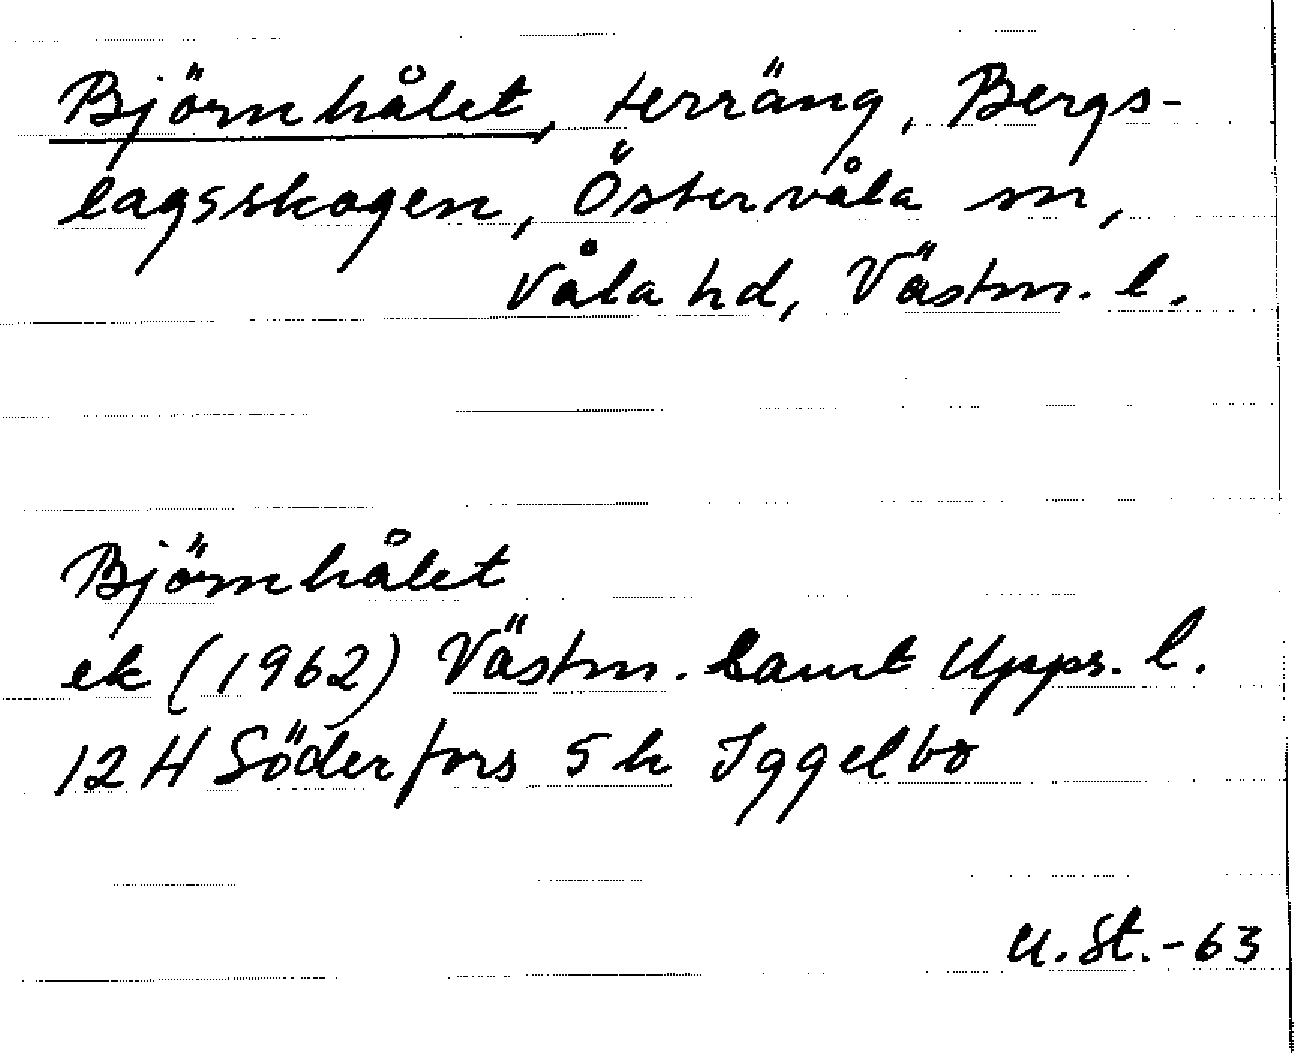 Björnhålet, terräng, Bergs-
lagsskogen, Östervåla sn,
Våla hd, Västm. l.
Björnhålet
ek (1962) Västm. samt Upps. l.
12 H Söderfors 5 h Iggelbo
U. St. -63